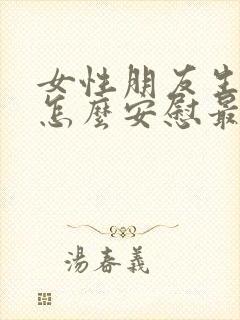 女性朋友生
怎麼安慰最
湯春義